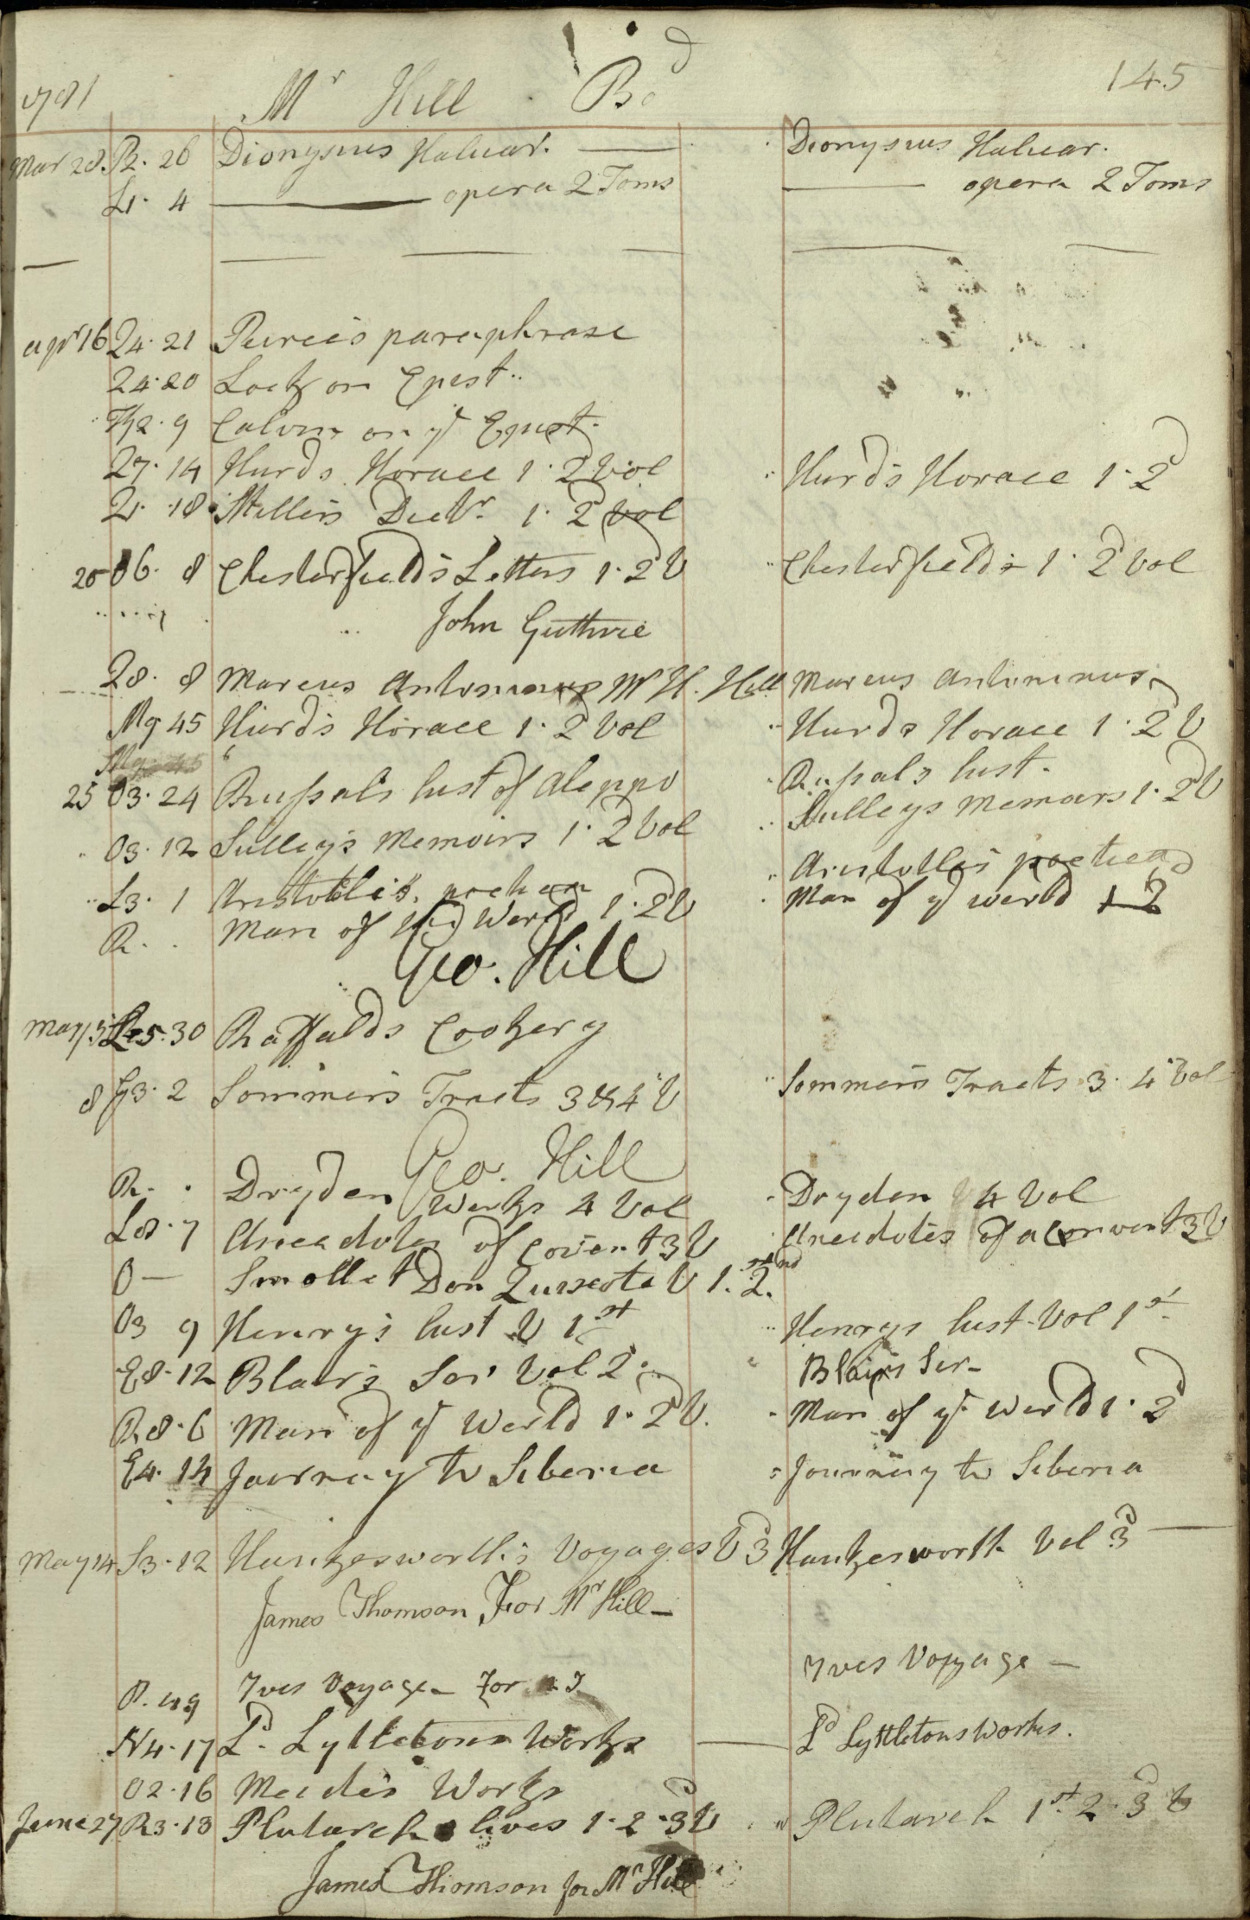 1781 Mr Hill Bd 145
Mar 28. R. 26 Dionysius Halicar. Dionysius Halicar.
L1. 4 opera 2 Toms opera 2 Toms
apr 16 24. 21 Peirce's paraphrase
24. 20 Lock on Epist..
9 Calvin on ye Epist.
27. 14 Hurd's Horace 1. 2d Vol Hurd's Horace 1. 2d
18 Miller's Dictr. 1. 2d Vol
20 O6. 8 Chesterfield's Letters 1. 2d V Chesterfield's 1. 2d Vol
John Guthrie
28. 8 Marcus Antoninus Mr H. Hill Marcus Antoninus
Mq 45 Hurd's Horace 1. 2d Vol Hurd's Horace 1. 2d V
25 O3. 24 Russal's hist of Aleppo Russals hist.
O3. 12 Sulley's Memoirs 1. 2d Vol Sulleys Memoirs 1. 2d V
L3. 1 Aristotle's Aristotle's poetica
R. . Man of World 1. 2d V Man of ye world 1 2
Geo. Hill
May 3 30 Raffalds Cookery
8 G3. 2 Sommers Tracts 3 & 4 V Sommers Tracts 3. 4 Vol
Geo. Hill
R. . Dryden Works 4 Vol Dryden 4 Vol
L8. 7 Anecdotes of Covent 3 V Anecdotes of a Convent 3 V
O — Smollet Don Quixote V 1. 2.
O3 9 Henry's hist V 1st Henrys hist. Vol 1st
E8. 12 Blair's Ser Vol 2 Blairs Ser-
R8. 6 Man of ye World 1. 2d V. Man of ye World 1. 2d
E4. 14 Journey to Siberia Journey to Siberia
May 14 S3. 12 Hawkesworth's Voyages V 3d Hawkesworth Vol 3d
James Thomson For Mr Hill
P. 49 Ives Voyage For Ives Voyage
N4. 17 Ld. Lyttletons Works Ld Lyttletons Works.
O2. 16 Meade's Works
June 27 R3. 13 Plutarch lives 1. 2. 3d V Plutarch 1st 2. 3d V
James Thomson for Mr Hill